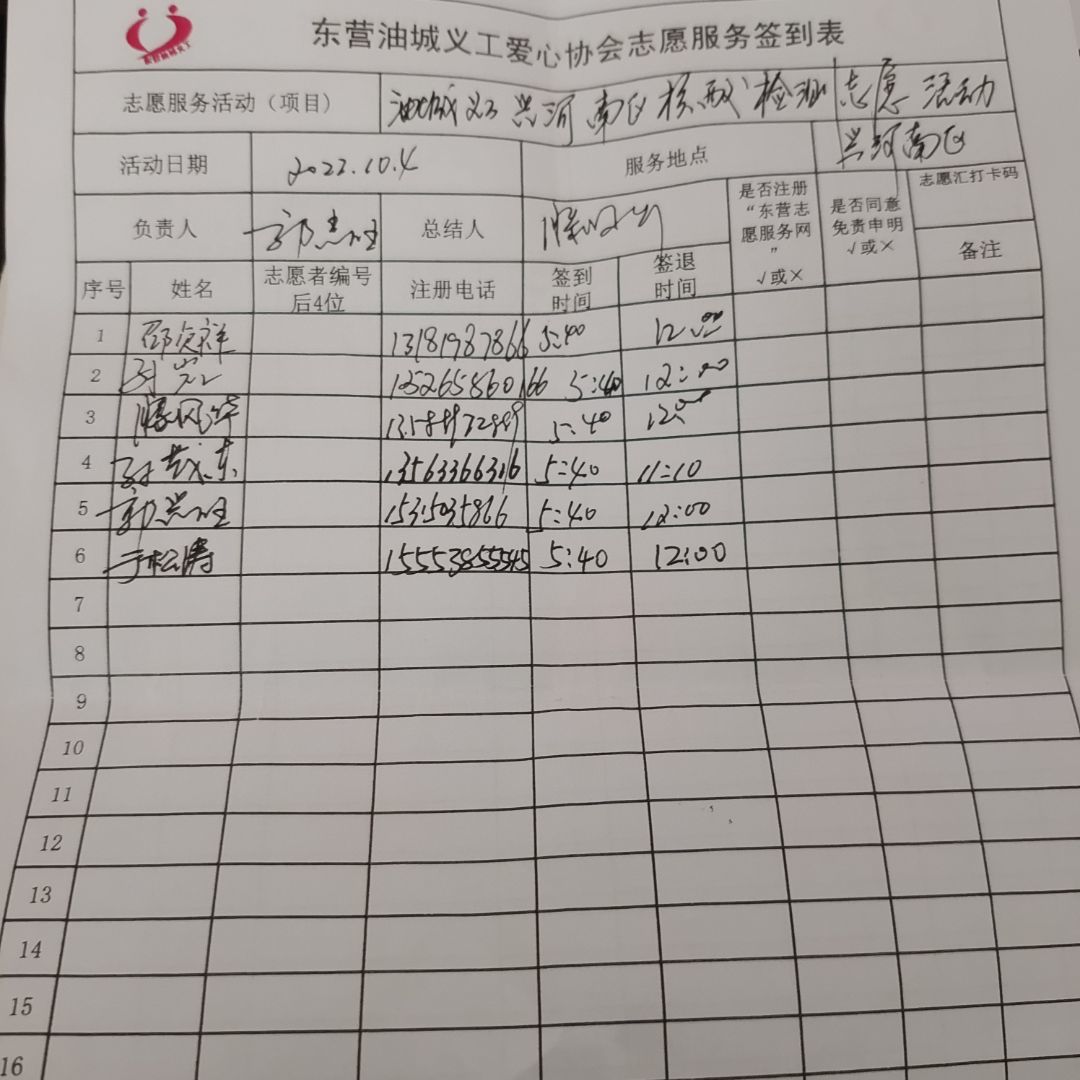 东营油城义工爱心协会志愿服务签到表
志愿服务活动（项目） 油城义工兴河南区核酸检测志愿活动
活动日期 2022.10.4 服务地点 兴河南区
负责人 总结人 是否注册“东营志愿服务网” √或× 是否同意免责申明 √或× 志愿汇打卡码
序号 姓名 志愿者编号后4位 注册电话 签到时间 签退时间 备注
1 邵贞祥 13181987866 5:40 12:00
2 13265860166 5:40 12:00
3 5:40 12:00
4 13563366316 5:40 11:10
5 5:40 12:00
6 于松涛 15553855545 5:40 12:00
7
8
9
10
11
12
13
14
15
16